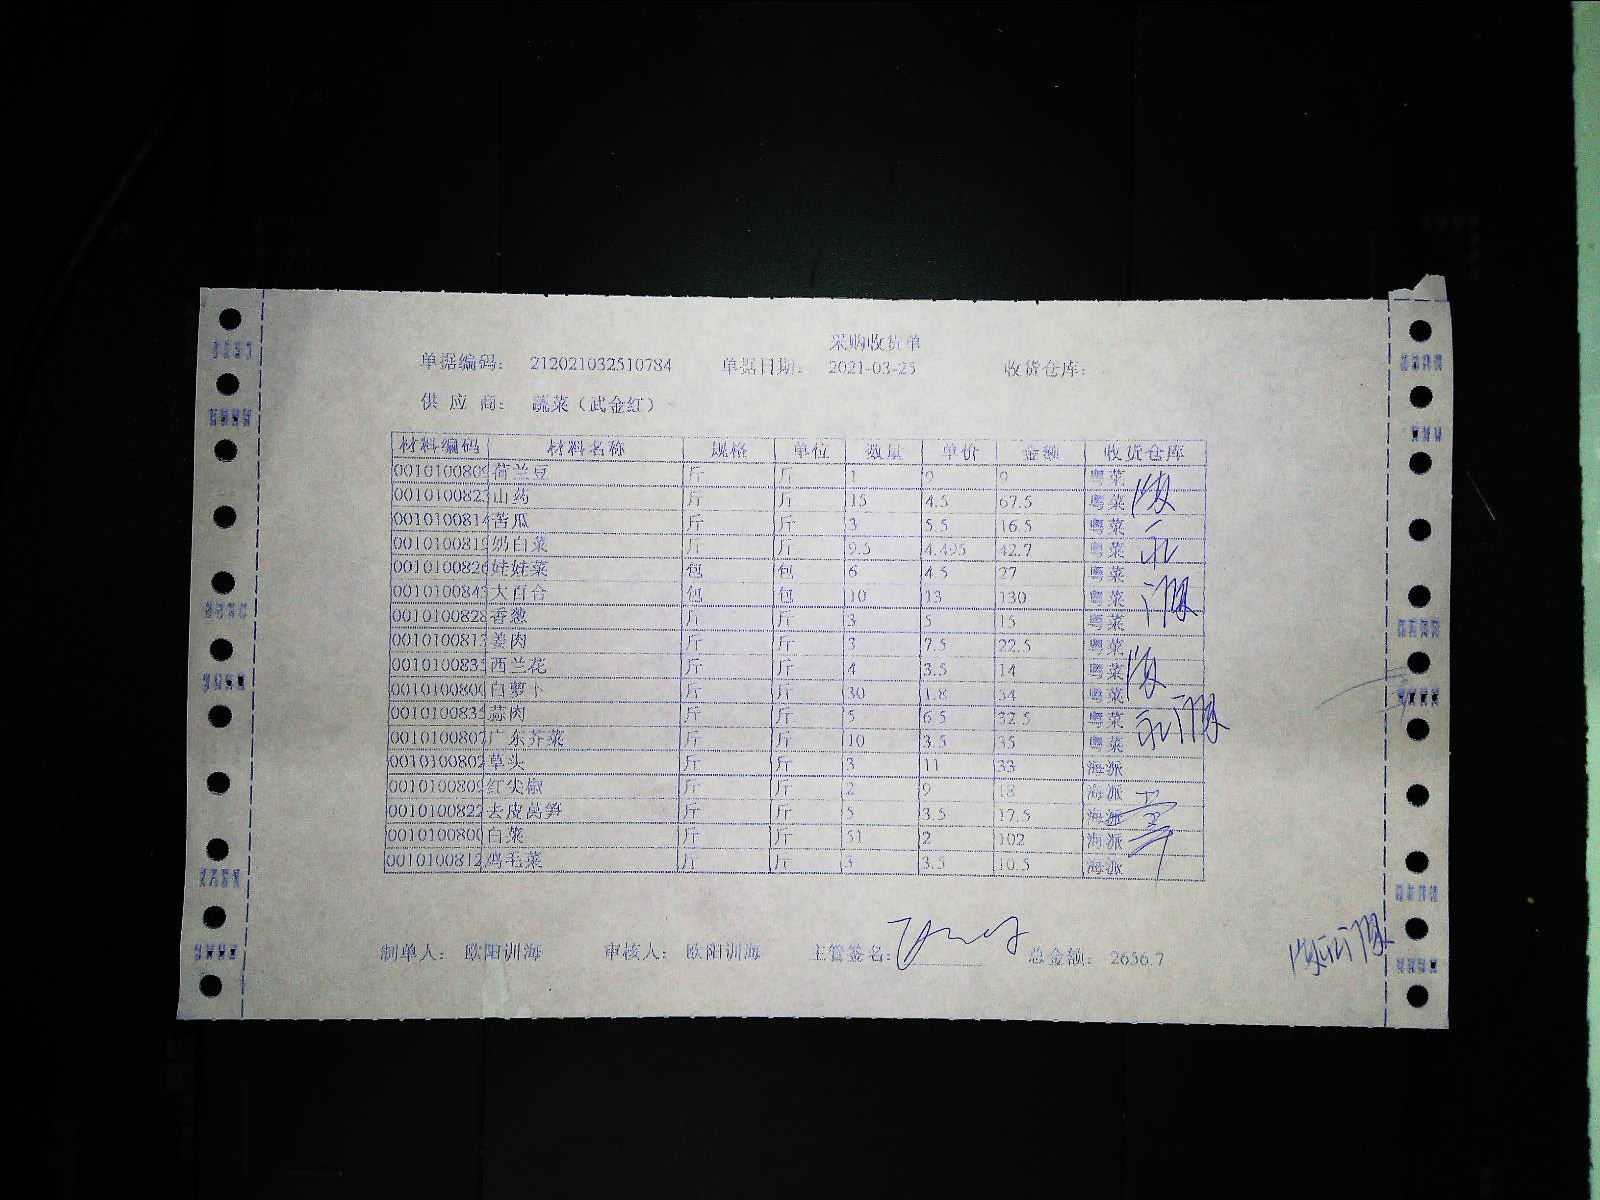 采购收货单
单据编码： 212021032510784 单据日期： 2021-03-25 收货仓库：
供 应 商： 蔬菜（武金红）
材料编码 材料名称 规格 单位 数量 单价 金额 收货仓库
0010100809 荷兰豆 斤 斤 1 9 9 粤菜
0010100823 山药 斤 斤 15 4.5 67.5 粤菜
0010100814 苦瓜 斤 斤 3 5.5 16.5 粤菜
0010100819 奶白菜 斤 斤 9.5 4.495 42.7 粤菜
0010100826 娃娃菜 包 包 6 4.5 27 粤菜
0010100843 大百合 包 包 10 13 130 粤菜
0010100828 香葱 斤 斤 3 5 15 粤菜
0010100813 姜肉 斤 斤 3 7.5 22.5 粤菜
0010100835 西兰花 斤 斤 4 3.5 14 粤菜
0010100800 白萝卜 斤 斤 30 1.8 54 粤菜
0010100835 蒜肉 斤 斤 5 6.5 32.5 粤菜
0010100807 广东芥菜 斤 斤 10 3.5 35 粤菜
0010100802 草头 斤 斤 3 11 33 海派
0010100809 红尖椒 斤 斤 2 9 18 海派
0010100822 去皮莴笋 斤 斤 5 3.5 17.5 海派
0010100800 白菜 斤 斤 51 2 102 海派
0010100812 鸡毛菜 斤 斤 3 3.5 10.5 海派
制单人： 欧阳训海 审核人： 欧阳训海 主管签名： 总金额： 2656.7